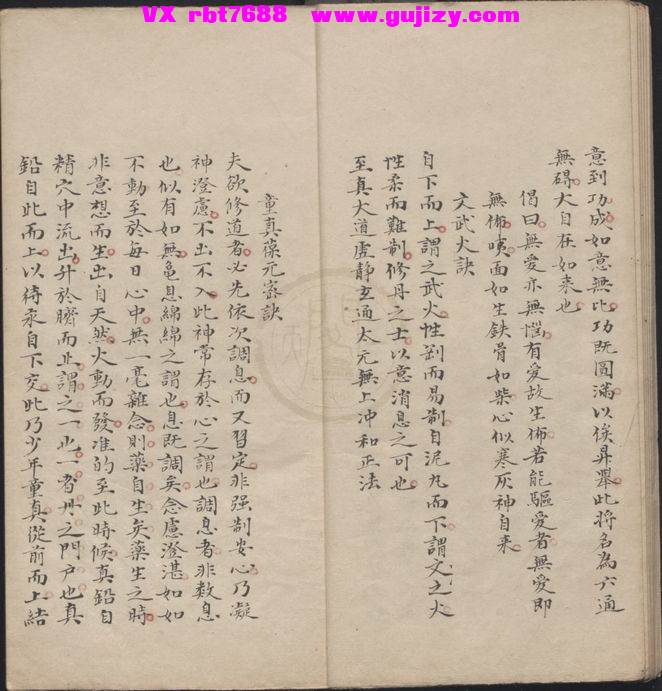 VX rbt7688 www.gujizy.com
意到功成如意無比功既圓滿以俟昇舉此將名為六通
無碍大自在如来也
偈曰無愛亦無惱有愛故生怖若能驅愛者無愛即
無怖嘆面如生鉄骨如柴心似寒灰神自来
文武火訣
自下而上謂之武火性剛而易制自泥丸而下謂文之火
性柔而難制修丹之士以意消息之可也
至真大道虛静玄通太元無上冲和正法
童真葆元宻訣
夫欲修道者必先依次調息而又習定非强制安心乃凝
神澄慮不出不入此神常存於心之謂也調息者非数息
也似有如無龟息綿綿之謂也息既調矣念慮澄湛如如
不動至於每日心中無一毫雜念則藥自生矣藥生之時
非意想而生出自天然火動而發准的至此時候真鉛自
精穴中流出升於臍而止謂之一也一者丹之門户也真
鉛自此而上以待汞自下交此乃少年童真從前而上結